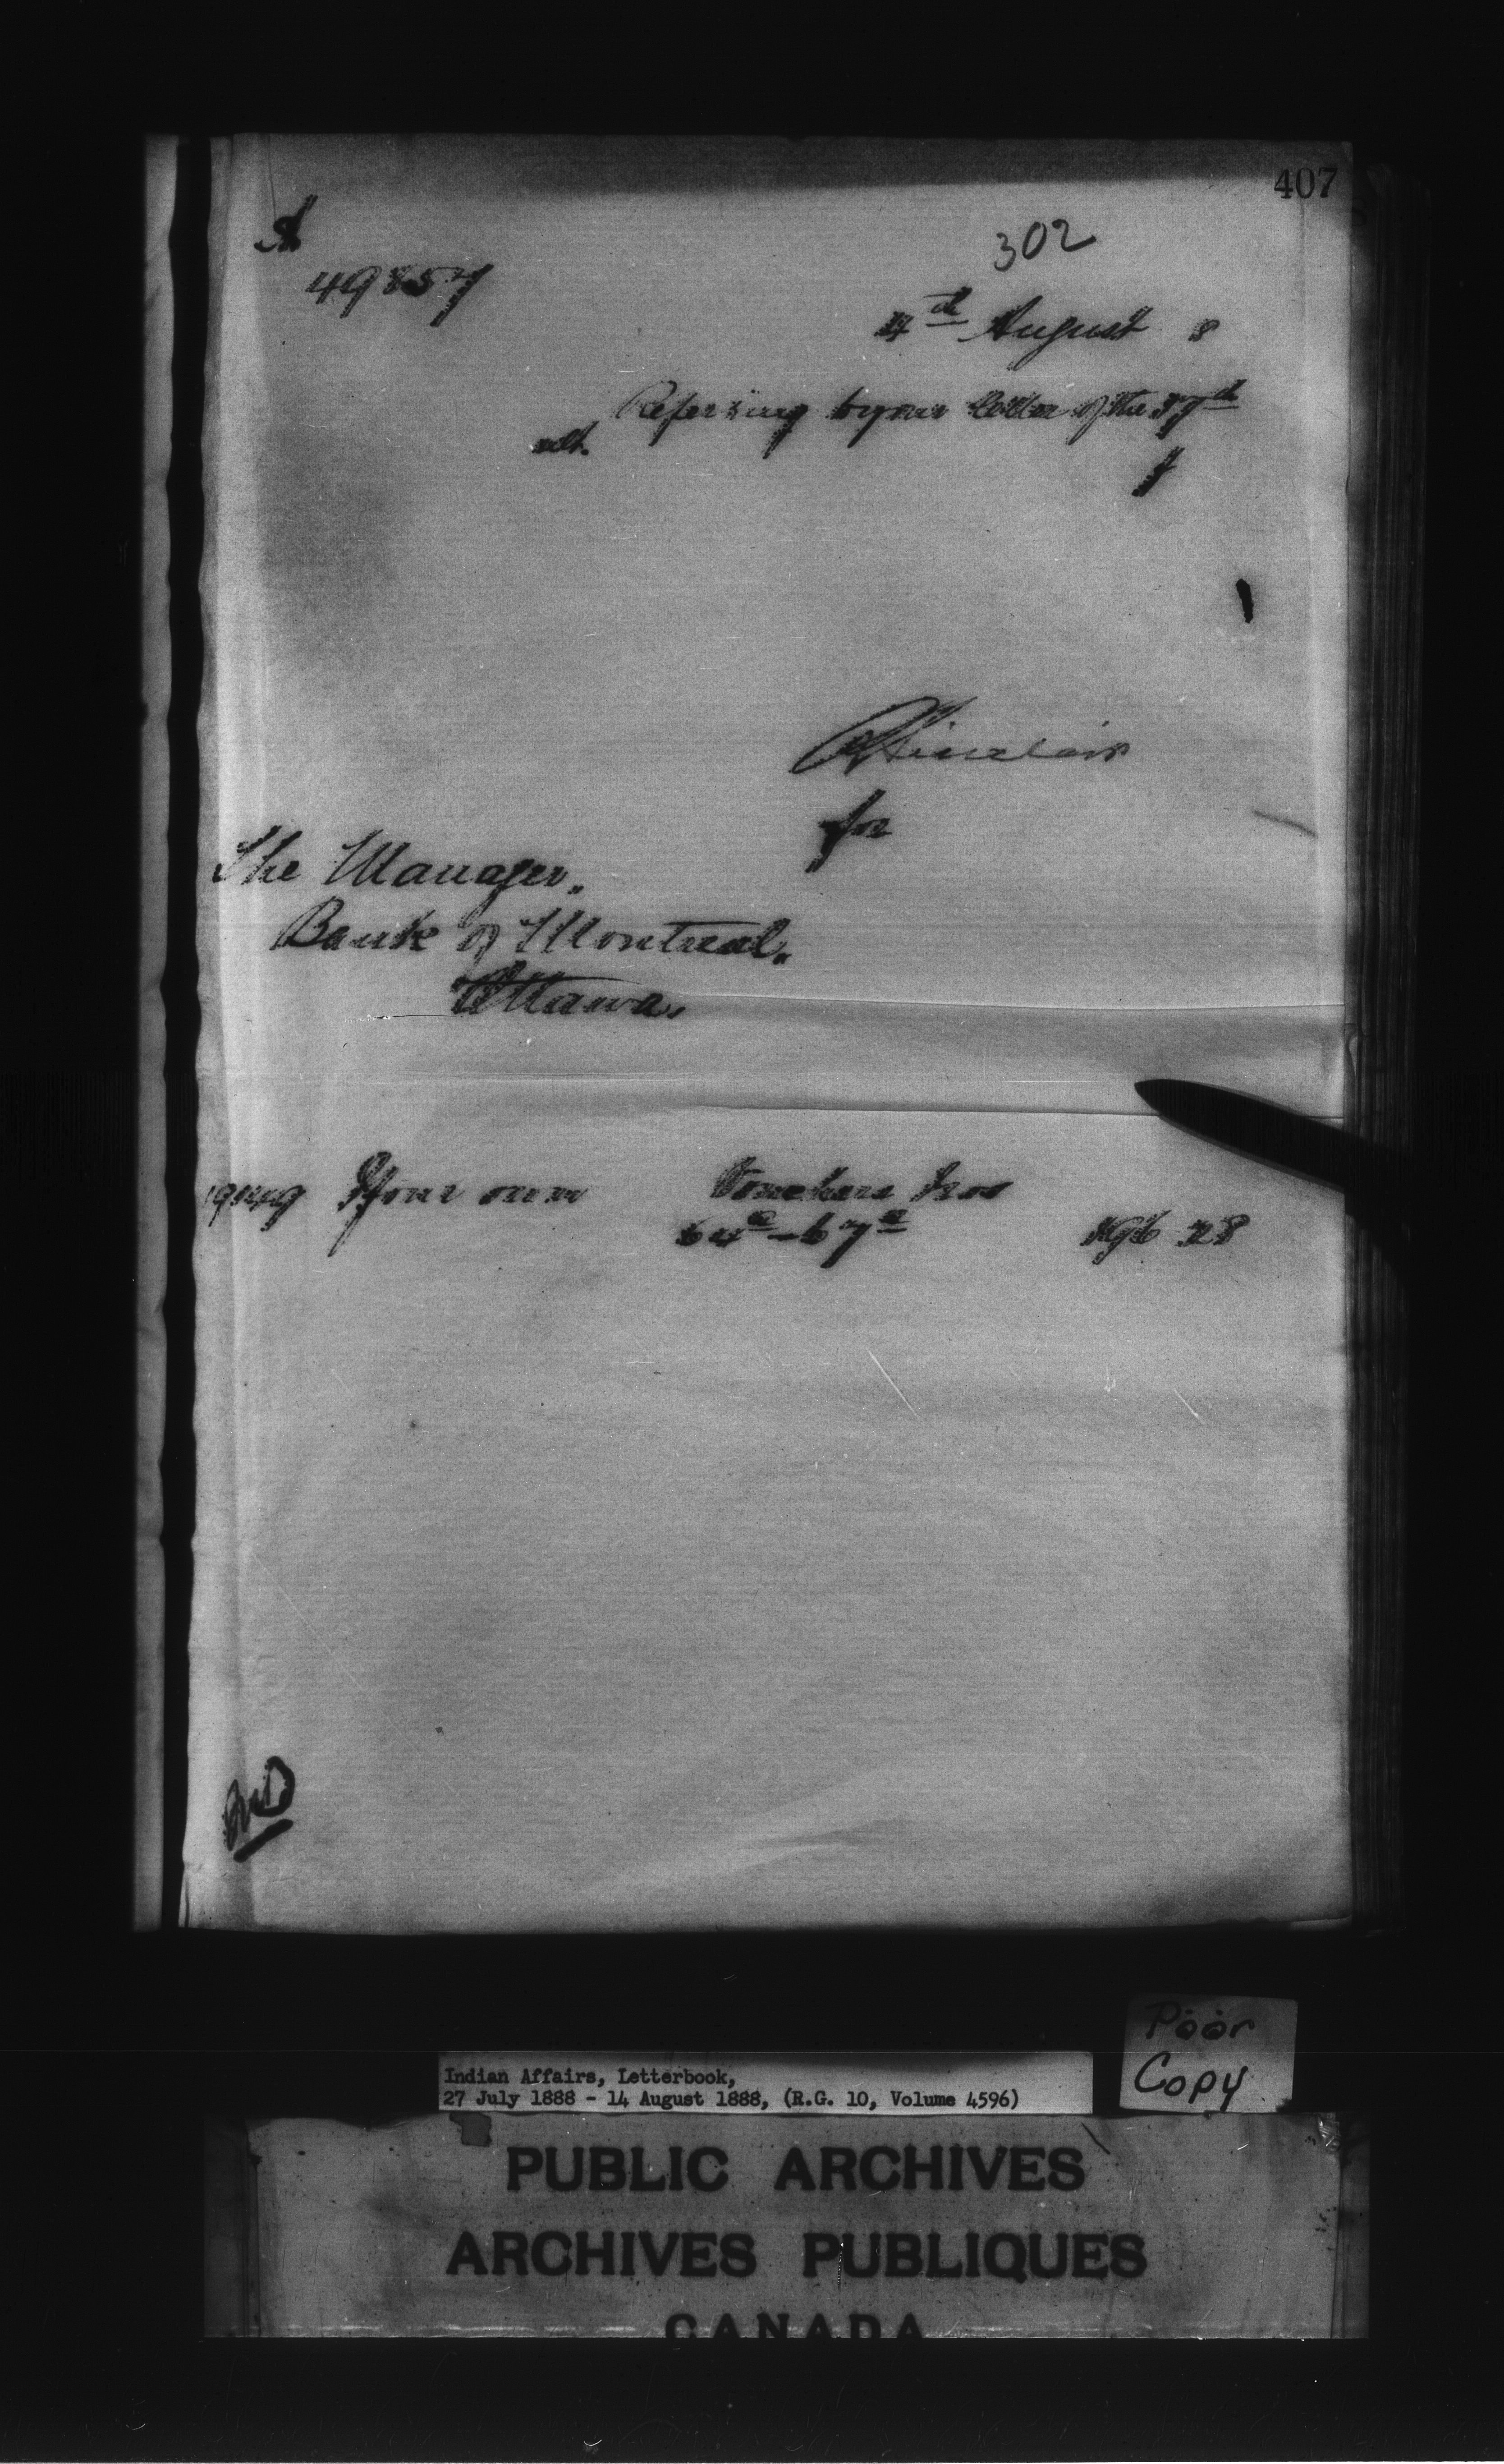 407
302
A
49857
4th August 8
Referring to your letter of the
ult.
Sinclair
for
The Manager.
Bank of Montreal.
Ottawa.
Your own Vouchers Nos
64a - 67a 196 28
Poor
Copy
Indian Affairs, Letterbook,
27 July 1888 - 14 August 1888, (R.G. 10, Volume 4596)
PUBLIC ARCHIVES
ARCHIVES PUBLIQUES
CANADA